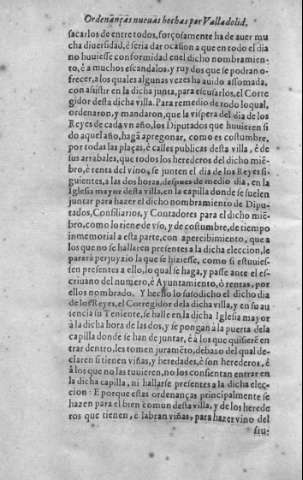 Ordenanças nueuas hechas por Valladolid.
sacarlos de entre todos, forçosamente ha de auer mu
cha diuersidad, è seria dar ocasion a que en todo el dia
no huuiesse conformidad en el dicho nombramien-
to, è a muchos escandalos, y ruydos que se podrian o-
frecer, a los quales algunas vezes ha auido assomada,
con assistir en la dicha junta, para escusarlos, el Corre
gidor desta dicha villa. Para remedio de todo lo qual,
ordenaron, y mandaron, que la vispera del dia de los
Reyes de cada vn año, los Diputados que huuieren si
do aquel año, haga apregonar, como es costumbre,
por todas las plaças, è calles publicas desta villa, è de
sus arrabales, que todos los herederos del dicho miē-
bro, è renta del vino, se junten el dia de los Reyes si-
guientes, a las dos horas, despues de medio dia, en la
Iglesia mayor desta villa, en la capilla donde se suelen
juntar para hazer el dicho nombramiento de Dipu-
tados, Consiliarios, y Contadores para el dicho miē-
bro, como lo tiene de vso, y de costumbre, de tiempo
inmemorial a esta parte, con apercibimiento, que a
los que no se hallaren presentes a la dicha eleccion, le
parará perjuyzio la que se hiziesse, como si estuuies-
sen presentes a ello, lo qual se haga, y passe ante el es-
criuano del numero, è Ayuntamiento, ò rentas, por
ellos nombrado. Y hecho lo susodicho el dicho dia
de los Reyes, el Corregidor dela dicha villa, y en su au
sencia su Teniente, se halle en la dicha Iglesia mayor
à la dicha hora de las dos, y se pongan à la puerta dela
capilla donde se han de juntar, è à los que quisierē en
trar dentro, les tomen juramēto, debaxo del qual de-
claren si tienen viñas, y heredades, è son herederos, è
à los que no las tuuieren, no los consientan entrar en
la dicha capilla, ni hallarse presentes a la dicha elec-
cion. E porque estas ordenanças principalmente se
hazen para el bien comun desta villa, y de los herede
ros que tienen, è labran viñas, para hazer vino del
su-